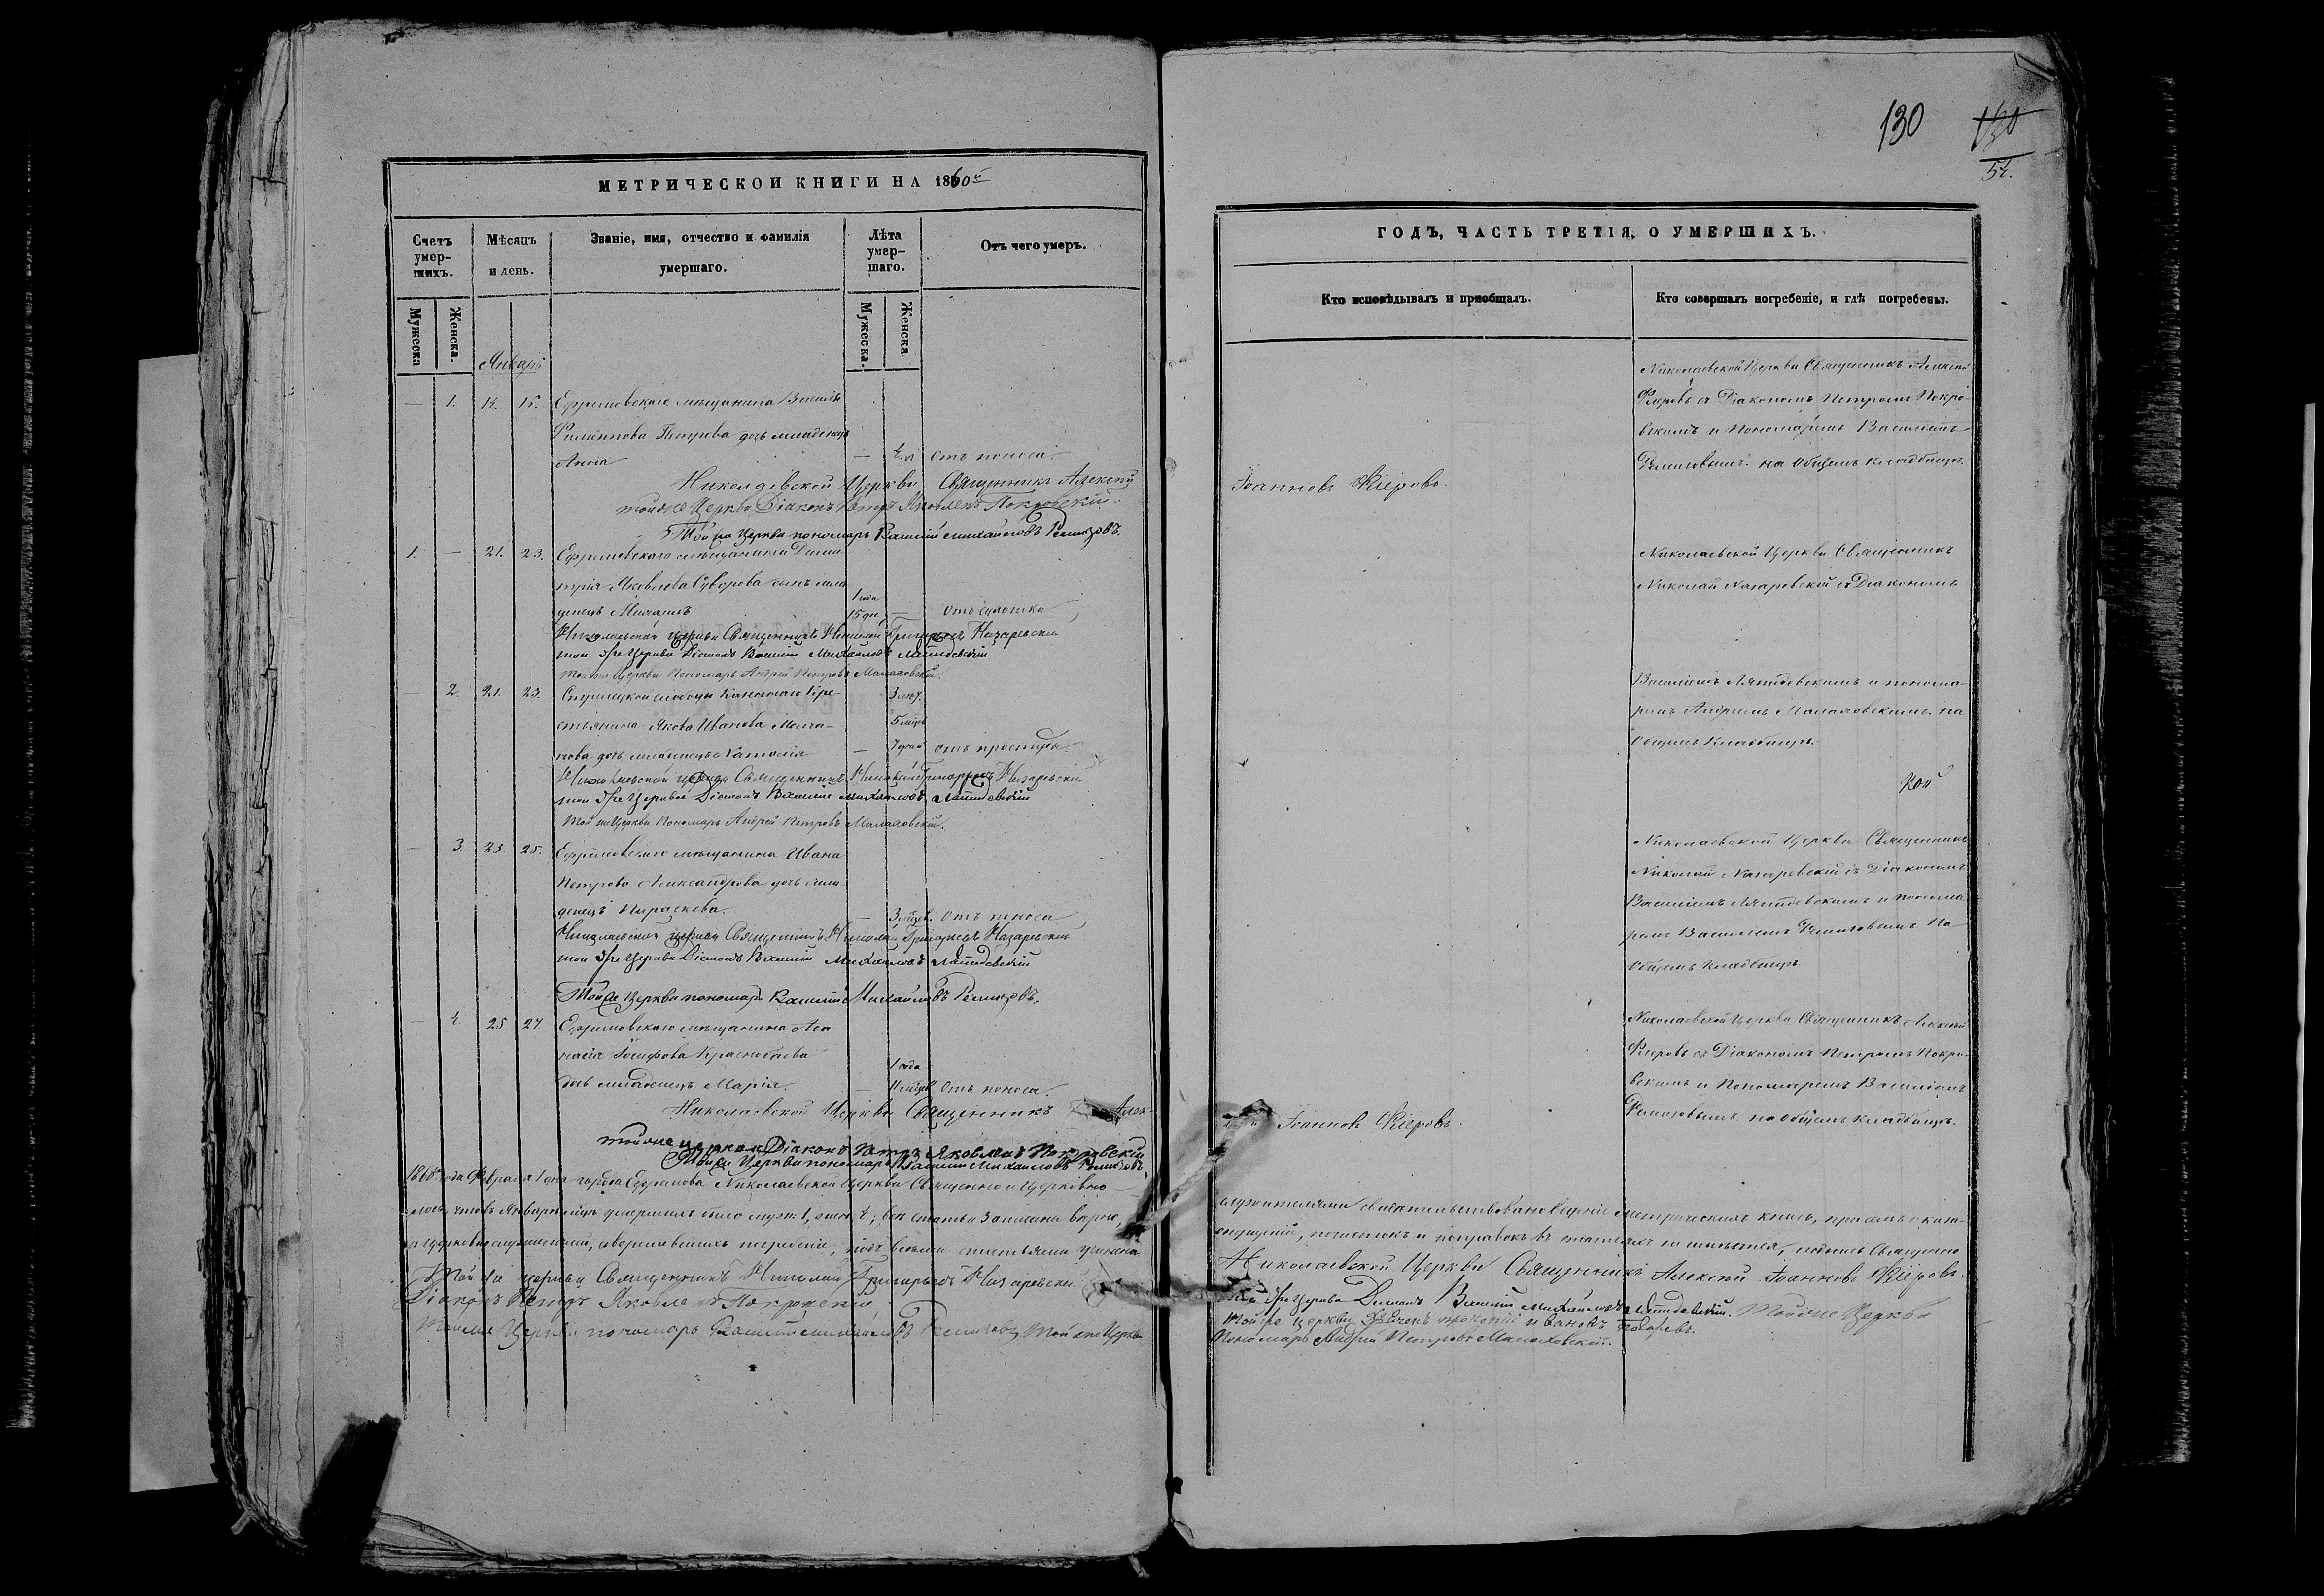 МЕТРИЧЕСКОЙ КНИГИ НА 1860й
Счетъ умер-шихъ.
Мѣсяцъ и день.
Званіе, имя, отчество и фамилія умершаго.
Лѣта умер-шаго.
Отъ чего умеръ.
Мужеска
Женска.
Мужеска.
Женска.
Январь
— 1. 14. 15. Ефремовскаго мѣщанина Василія
Филиппова Петрова дочь младенецъ
Анна — отъ поноса.
Николаевской Церкви Священникъ Алексѣй
тойже Церкви Діаконъ Петръ Яковлевъ Покровскій.
Той же Церкви пономарь Василій Михайловъ Ремизовъ.
1. — 21. 23. Ефремовскаго мѣщанина Дими-
трія Яковлева Суворова сынъ мла-
денецъ Михаилъ 1 года 15 дн. — отъ сухотки
Николаевской церкви Священникъ Николай Григорьевъ Назаревскій
той же Церкви Діаконъ Василій Михайловъ Лапидевскій
Той же Церкви Пономарь Андрей Петровъ Малаховскій.
— 2. 21. 23. Стрѣлецкой слободы Кре-
стьянина Якова Иванова Молча-
нова дочь младенецъ Наталія — 5 мѣсц. 7 дней отъ простуды.
Николаевской церкви Священникъ Николай Григорьевъ Назаревскій
той же Церкви Діаконъ Василій Михайловъ Лапидевскій
Той же Церкви Пономарь Андрей Петровъ Малаховскій.
— 3. 23. 25. Ефремовскаго мѣщанина Ивана
Петрова Александрова дочь мла-
денецъ Параскева. — 3 мѣсц. отъ поноса
Николаевской церкви Священникъ Николай Григорьевъ Назаревскій
той же Церкви Діаконъ Василій Михайловъ Лапидевскій
Той же Церкви пономарь Василій Михайловъ Ремизовъ.
— 4 25 27. Ефремовскаго мѣщанина Аѳа-
насія Іосифова Краснобаева
дочь младенецъ Марія. — 1 года 11 мѣсц. отъ поноса.
Николаевской Церкви Священникъ Алек-
тойже церкви Діаконъ Петръ Яковлевъ Покровскій
Той же Церкви пономарь Василій Михайловъ Ремизовъ
1860 года Февраля 1 дня города Ефремова Николаевской Церкви Священно и Церковно-
лось, что въ Январѣ мѣсцѣ умершихъ было муж. 1, жен. 4; всѣ статьи записаны вѣрно,
и Церковнослужителей, совершавшихъ погребеніе, подъ всѣми статьями учинена
Той же церкви Священникъ Николай Григорьевъ Назаревскій
Діаконъ Петръ Яковлевъ Покровскій
Той же Церкви пономарь Василій Михайловъ Ремизовъ Той же Церкви
130
130
54.
ГОДЪ, ЧАСТЬ ТРЕТІЯ, О УМЕРШИХЪ.
Кто исповѣдывалъ и пріобщалъ.
Кто совершалъ погребеніе, и гдѣ погребены.
Николаевской Церкви Священникъ Алексѣй
Флеровъ съ Діакономъ Петромъ Покро-
вскимъ и Пономаремъ Василіемъ
Ремизовымъ на Общемъ кладбищѣ.
Іоанновъ Флеровъ.
Николаевской Церкви Священникъ
Николай Назаревскій съ Діакономъ
Василіемъ Лапидевскимъ и понома-
ремъ Андреемъ Малаховскимъ на
Общемъ Кладбищѣ.
Николаевской Церкви Священникъ
Николай Назаревскій съ Діакономъ
Василіемъ Лапидевскимъ и понома-
ремъ Василіемъ Ремизовымъ На
Общемъ Кладбищѣ
Николаевской Церкви Священникъ Алексѣй
Флеровъ съ Діакономъ Петромъ Покро-
вскимъ и Пономаремъ Василіемъ
Ремизовымъ на Общемъ кладбищѣ.
Іоанновъ Флеровъ.
служителями свидѣтельствовано веденіе метрическихъ книгъ, при чемъ оказа-
опущеній, почистокъ и поправокъ въ статьяхъ не имѣется, подпись Священно
Николаевской Церкви Священникъ Алексѣй Іоанновъ Флеровъ.
Той же Церкви Діаконъ Василій Михайловъ Лапидевскій. Той же Церкви
Той же церкви Прокопій Ивановъ
Пономарь Андрей Петровъ Малаховскій.